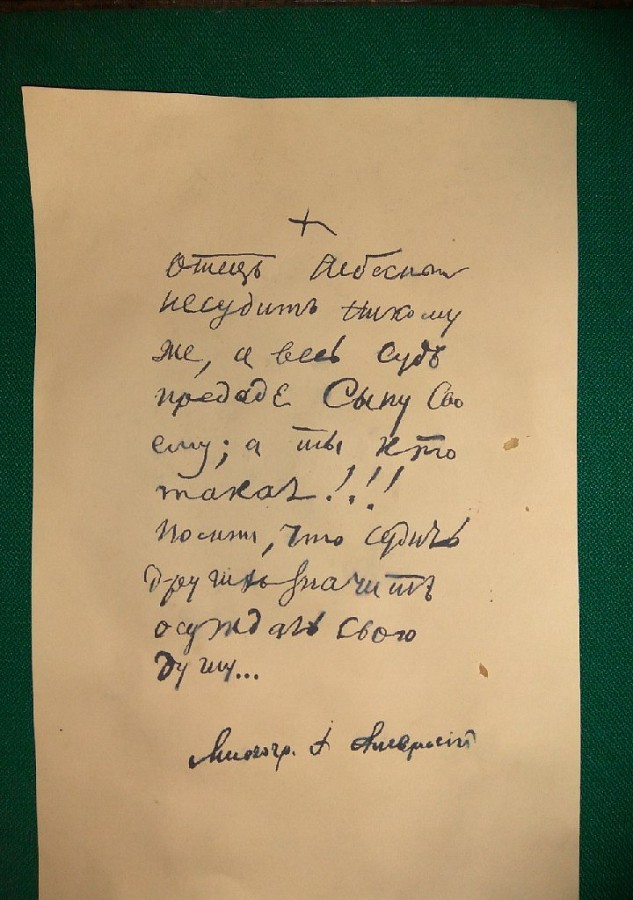 +
Отецъ Небесный
несудитъ никому
же, а весь судъ
предаде Сыну Сво
ему; а ты кто
такая!!!
Помни, что судить
другихъ значитъ
осуждать свою
душу...
Многогр. А Амвросій